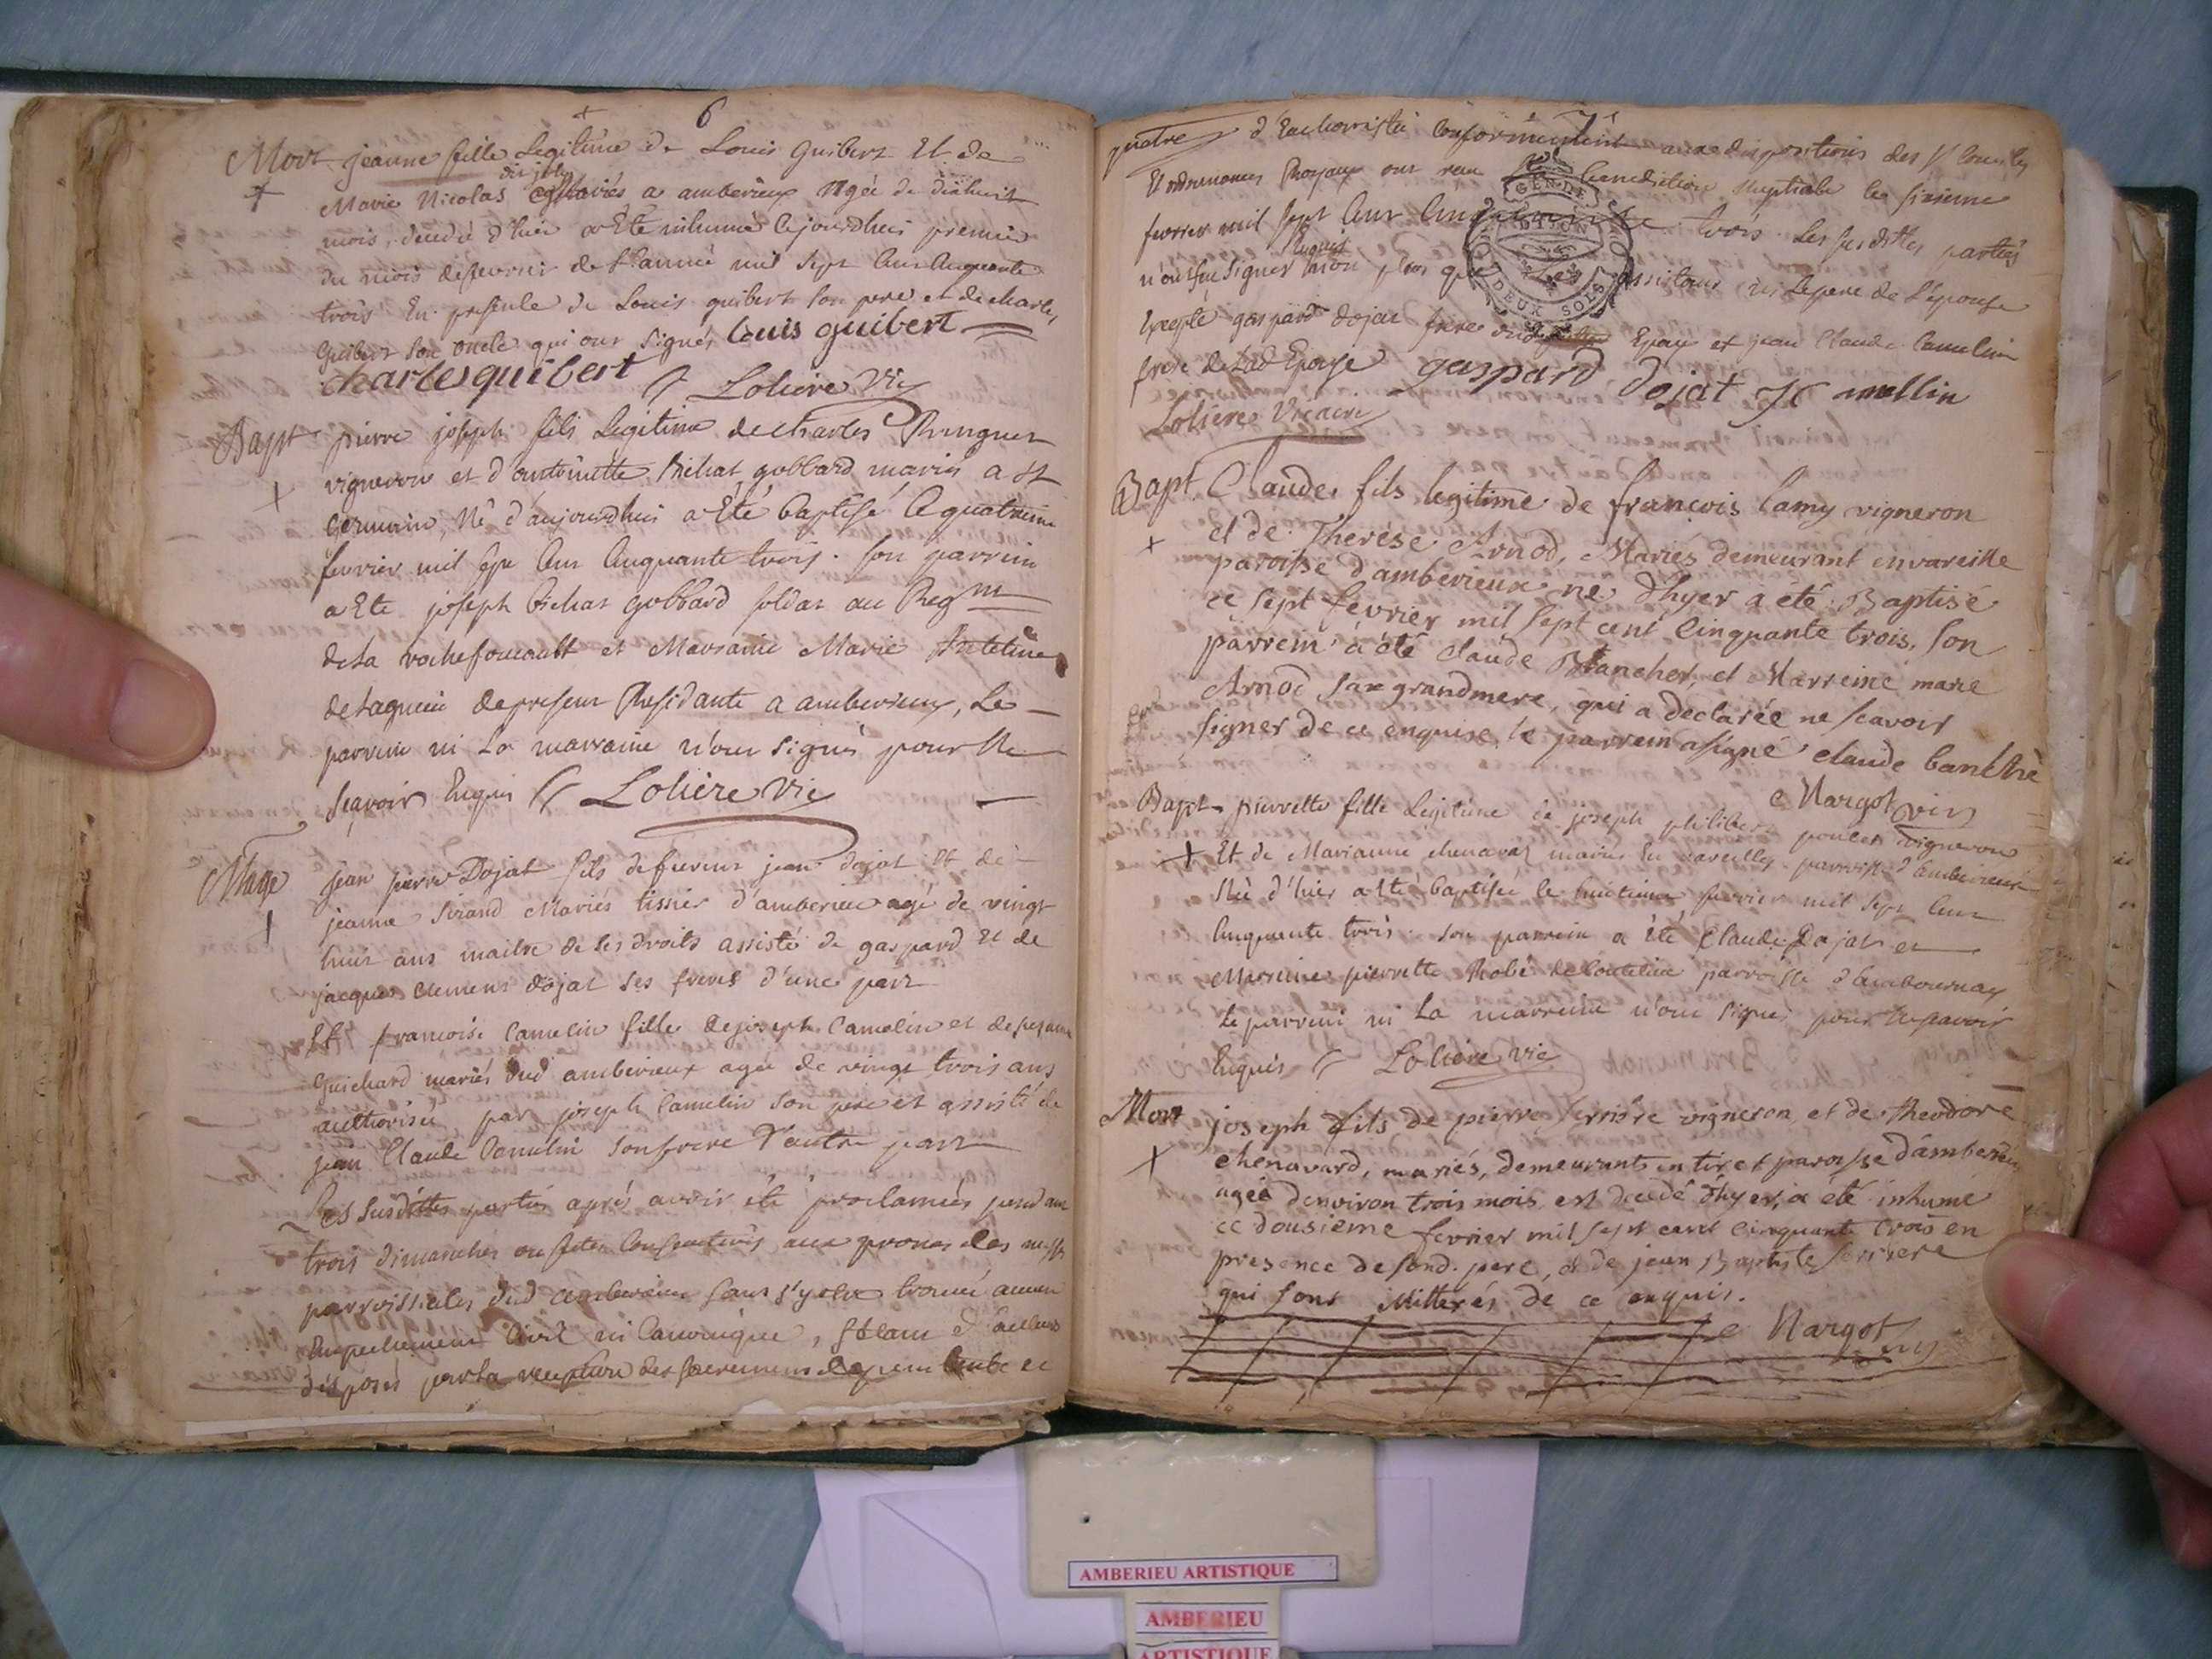 6
Mort jeanne fille Legitime de Louis guibert Et de
Marie Nicolas mariés a amberieux agée de dixhuit
mois, decedée d'hier a Eté inhumée cejourdhui premier
du mois de fevrier de l'année mil sept cent cinquante
trois En presence de Louis guibert son pere et de charles
Guibert son oncle qui ont signés Louis guibert
charles guibert Loliere vic
Bapt pierre joseph fils Legitime de charles Ringuet
vigneron et d'antoinette gobbard mariés a St
Germain, Né d'aujourdhui a Eté baptisé le quatrieme
fevrier mil sept cent cinquante trois. son parrein
a Eté joseph gobbard soldat au Regmt
de la rochefoucault et Marraine Marie
de presente Residante a amberieux, Le
parrein ni La marraine n'ont signés pour Ne
sçavoir Enquis Loliere vic
Mage jean pierre Dojat fils de furent jean dojat Et de
jeanne mariés tissier d'amberieu agé de vingt
huit ans maitre de ses droits assisté de gaspard Et de
jacques clement dojat ses freres d'une part
Et francoise Camelin fille de joseph Camelin et de
Guichard mariés dud amberieux agée de vingt trois ans
authorisée par joseph Camelin son pere et assistée de
jean Claude Camelin son frere d'autre part
Les susdittes parties aprés avoir été proclamées pendant
trois dimanches ou fetes consecutives aux prones des messes
parroissiales dud amberieux sans s'y etre trouvé aucun
Empechement civil ni canonique, Etant d'ailleurs
disposés par la reception des sacremens de penitence et
7
d'Eucharistie conformement aux dispositions des Sts Conciles
Et ordonnances Royaux ont recu la benediction nuptiale le sixieme
fevrier mil sept cent cinquante trois. Les susdittes parties
n'ont sçu signer Enquis non plus que Les assistans ni Le pere de L'épouse
Excepté gaspard dojat frere Epoux et jean Claude Camelin
frere de Lad Epouse gaspard dojat JC mellin
Loliere Vicaire
GEN DE
DIJON
DEUX SOLS
Bapt Claude fils legitime de françois lamy vigneron
et de Therése Arnod, Mariés demeurant en vareille
paroisse d'amberieux né d'hyer a été Baptisé
ce sept fevrier mil sept cent cinquante trois, son
parrein a été claude Blanchet, et Marreine marie
Arnod sa grandmere, qui a declarée ne scavoir
signer de ce enquise, le parrein a signé claude banchè
Margot vic
Bapt pierrette fille Legitime de joseph philibert poncet vigneron
Et de Marianne chenavaz mariés En vareilles parroisse d'amberieux
Née d'hier a Eté baptisée le huitieme fevrier mil sept cent
cinquante trois. son parrein a Eté Claude Dojat et
Marreine pierrette Robé parroisse d'ambournay
Le parrein ni La marreine n'ont signés pour Ne sçavoir
Enquis Loliere vic
Mort joseph fils de pierre serriere vigneron et de theodore
chenavard, mariés, demeurants en tiret paroisse d'amberieux
agée d'environ trois mois est decedé d'hyer, a été inhumé
ce dousieme fevrier mil sept cent cinquante trois en
presence de sond. pere, et de jean Baptiste serriere
qui sont illitterés de ce enquis.
Margot vic
AMBERIEU ARTISTIQUE
AMBERIEU
ARTISTIQUE